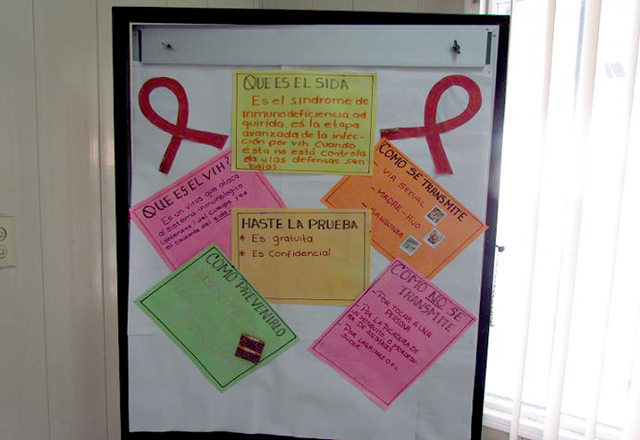 QUE ES EL SIDA
Es el sindrome de
inmunodeficiencia ad
quirida, es la etapa
avanzada de la infec-
ción por vih cuando
ésta no está controla
da y las defensas son
bajas.
QUE ES EL VIH?
Es un virus que ataca
al sistema inmunologico
(defensas) del cuerpo y es
el causante del sida
COMO SE TRANSMITE
- VIA SEXUAL
- MADRE-HIJO
- SANGUINEA
HASTE LA PRUEBA
* Es gratuita
* Es Confidencial
COMO PREVENIRLO
COMO NO SE
TRANSMITE
- POR TOCAR A UNA
PERSONA
- POR LA PICADURA DE
UN MOSQUITO, O MORDEDU-
RA DE ANIMALES
- POR LAGRIMAS O EL
SUDOR